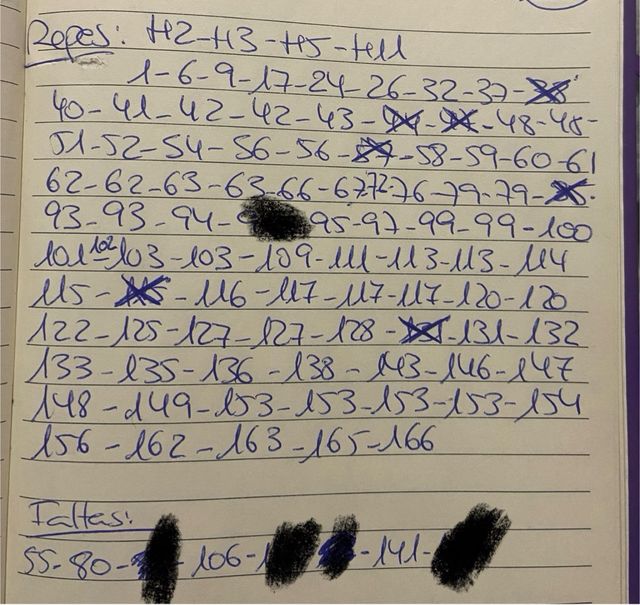 Repes: H2-H3-H5-H11
1-6-9-17-24-26-32-37-
40-41-42-42-43- - -48-48-
51-52-54-56-56- -58-59-60-61
62-62-63-63-66-67-72-76-79-79- -
93-93-94- 95-97-99-99-100
101-102-103-103-109-111-113-113-114
115- -116-117-117-117-120-120
122-125-127-127-128- -131-132
133-135-136-138-143-146-147
148-149-153-153-153-153-154
156-162-163-165-166
Faltas:
55-80- -106- -141-